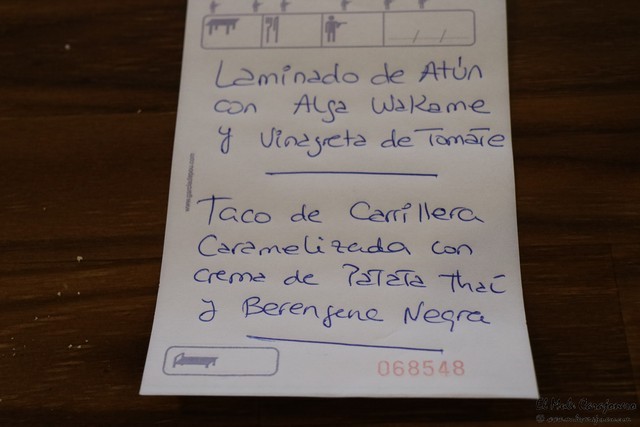 Laminado de Atún
con Alga Wakame
y Vinagreta de Tomate
Taco de Carrillera
Caramelizada con
crema de Patata Thai
y Berengena Negra
068548